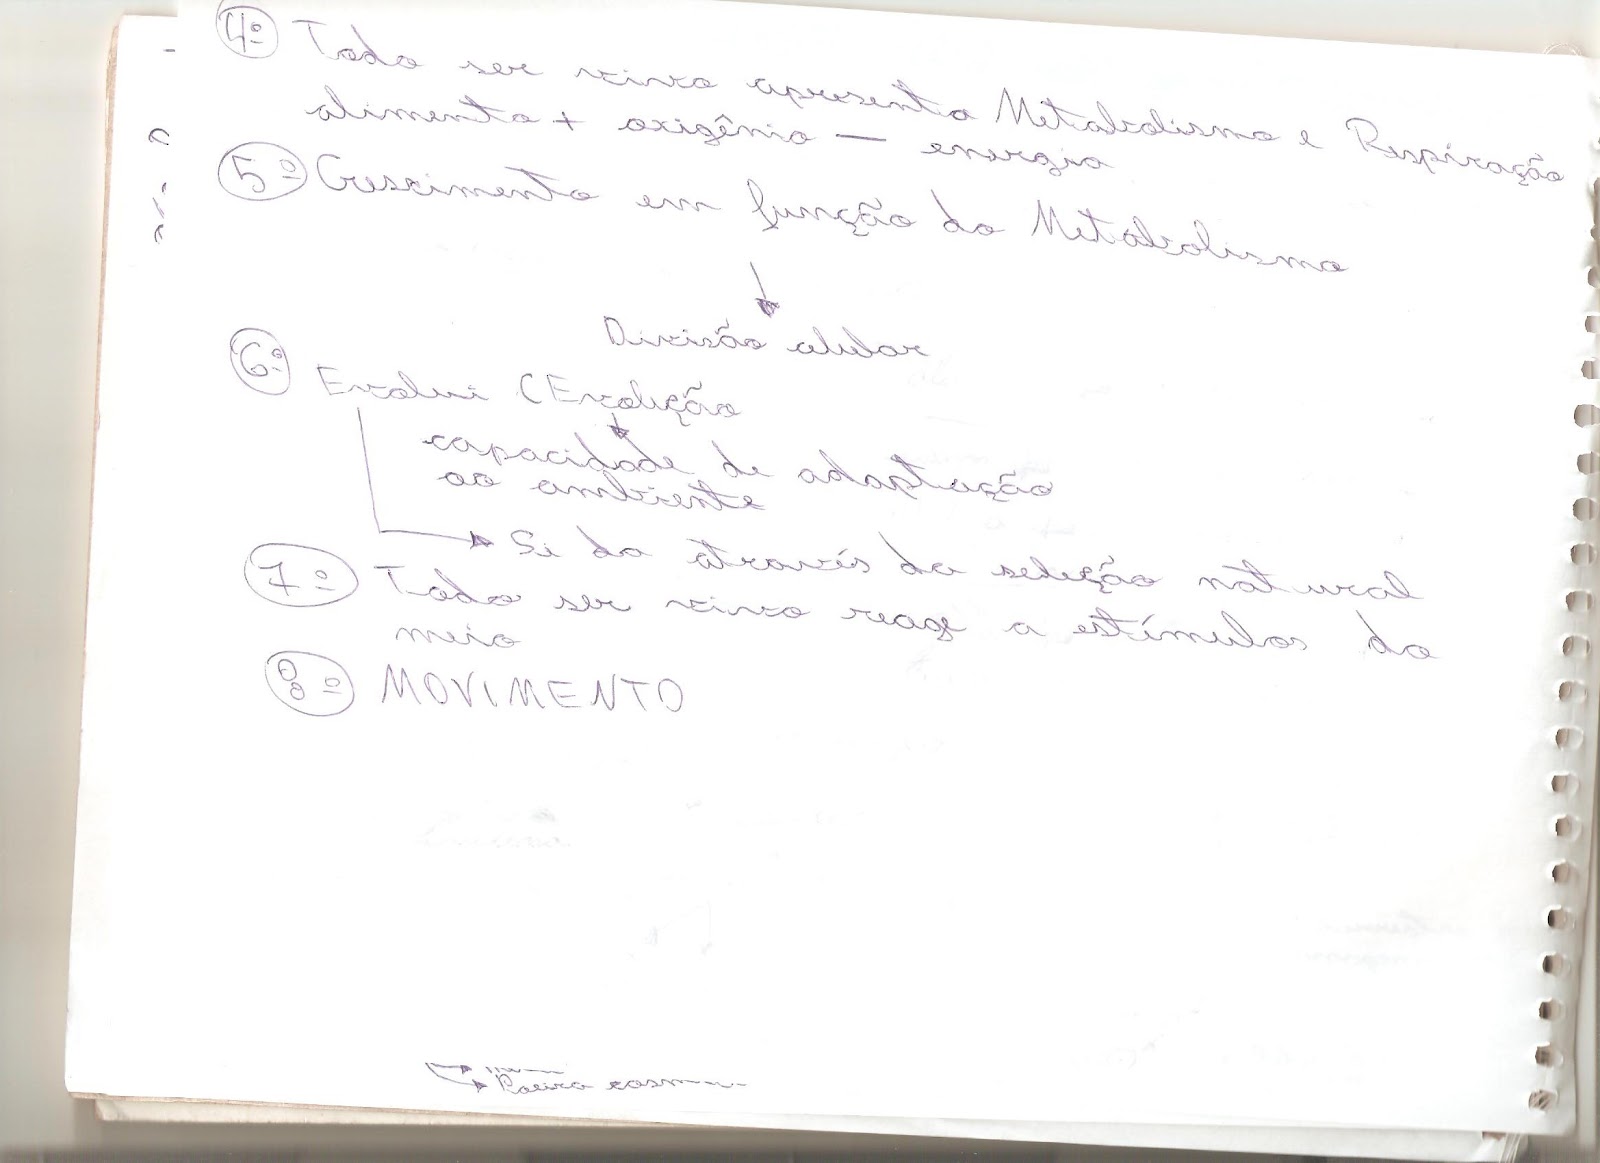 4º Todo ser vivo apresenta Metabolismo e Respiração
alimento + oxigênio — energia
5º Crescimento em função do Metabolismo
Divisão celular
6º Evolui (Evolução
capacidade de adaptação
ao ambiente
Si da através da seleção natural
7º Todo ser vivo reage a estímulos do
meio
8º MOVIMENTO
Poeira